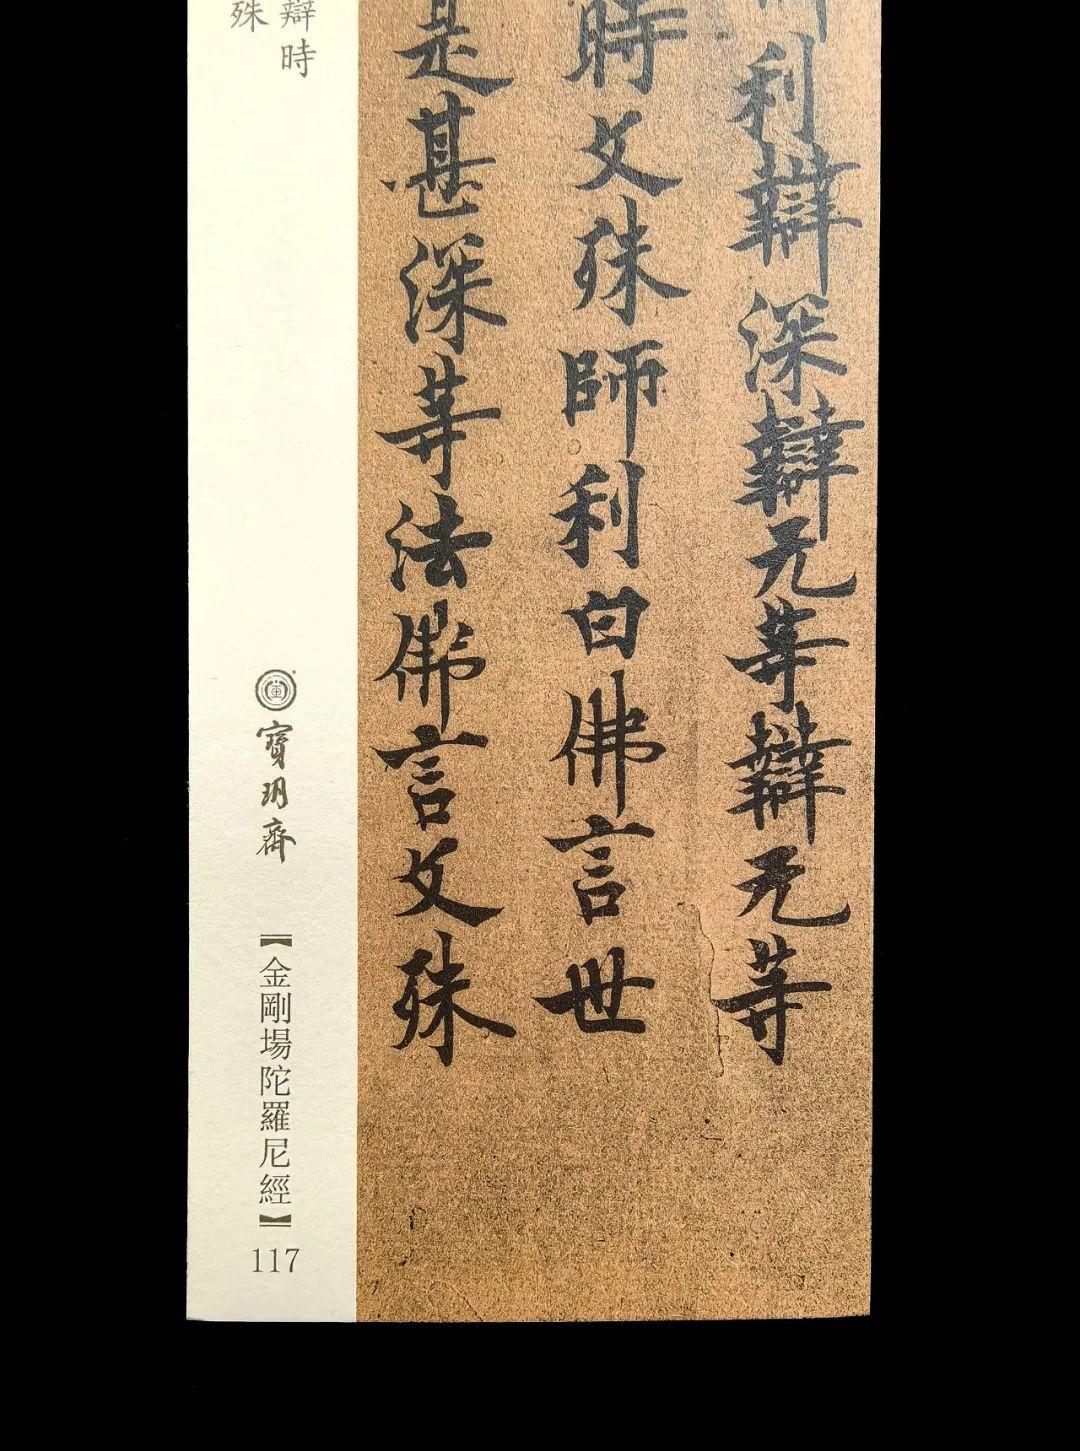 利辯深辯无等辯无等
時文殊師利白佛言世
是甚深等法佛言文殊
辯時
殊
寶玥齋
【金剛場陀羅尼經】
117